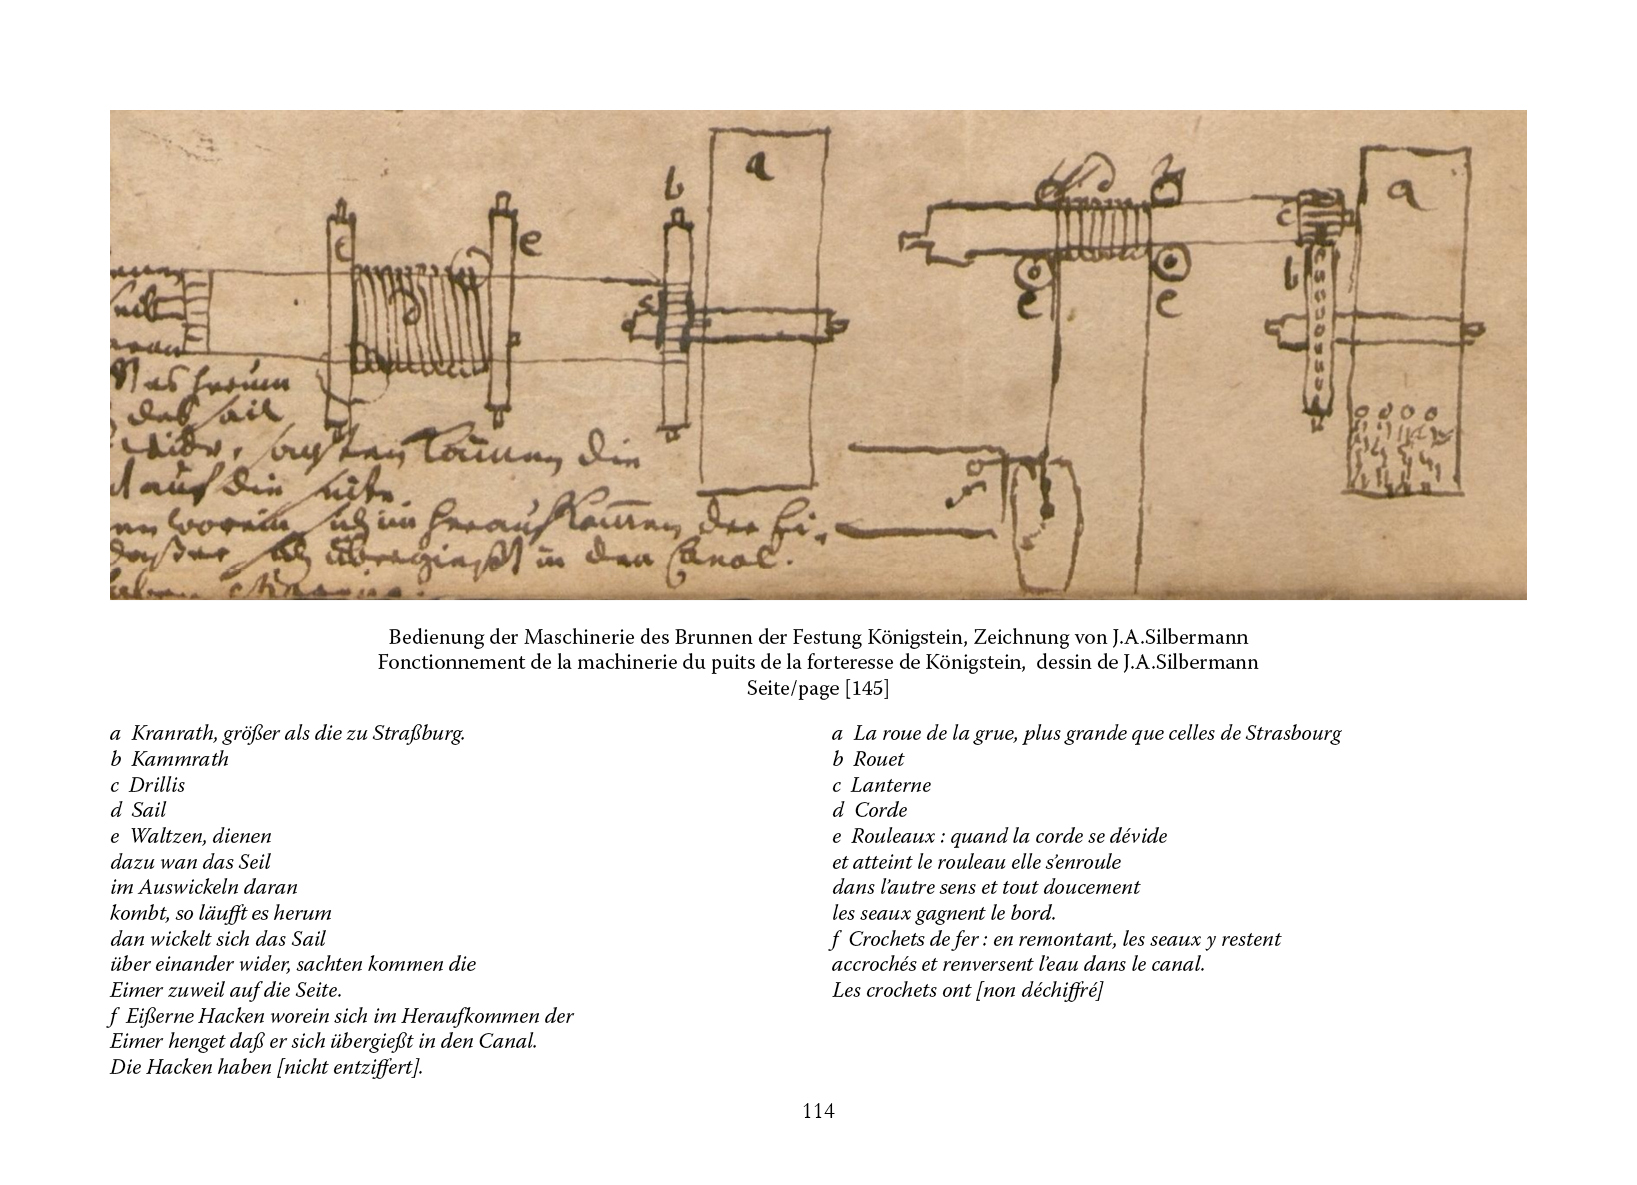 a
b
e
e
d
c
a
c
b
e
e
f
das Sail
kommen die
auf die Seite.
worein sich im Heraufkommen der Ei-
sich übergießt in den Canal.
Bedienung der Maschinerie des Brunnen der Festung Königstein, Zeichnung von J.A.Silbermann
Fonctionnement de la machinerie du puits de la forteresse de Königstein, dessin de J.A.Silbermann
Seite/page [145]
a Kranrath, größer als die zu Straßburg.
b Kammrath
c Drillis
d Sail
e Waltzen, dienen
dazu wan das Seil
im Auswickeln daran
kombt, so läufft es herum
dan wickelt sich das Sail
über einander wider, sachten kommen die
Eimer zuweil auf die Seite.
f Eißerne Hacken worein sich im Heraufkommen der
Eimer henget daß er sich übergießt in den Canal.
Die Hacken haben [nicht entziffert].
a La roue de la grue, plus grande que celles de Strasbourg
b Rouet
c Lanterne
d Corde
e Rouleaux : quand la corde se dévide
et atteint le rouleau elle s'enroule
dans l'autre sens et tout doucement
les seaux gagnent le bord.
f Crochets de fer : en remontant, les seaux y restent
accrochés et renversent l'eau dans le canal.
Les crochets ont [non déchiffré]
114